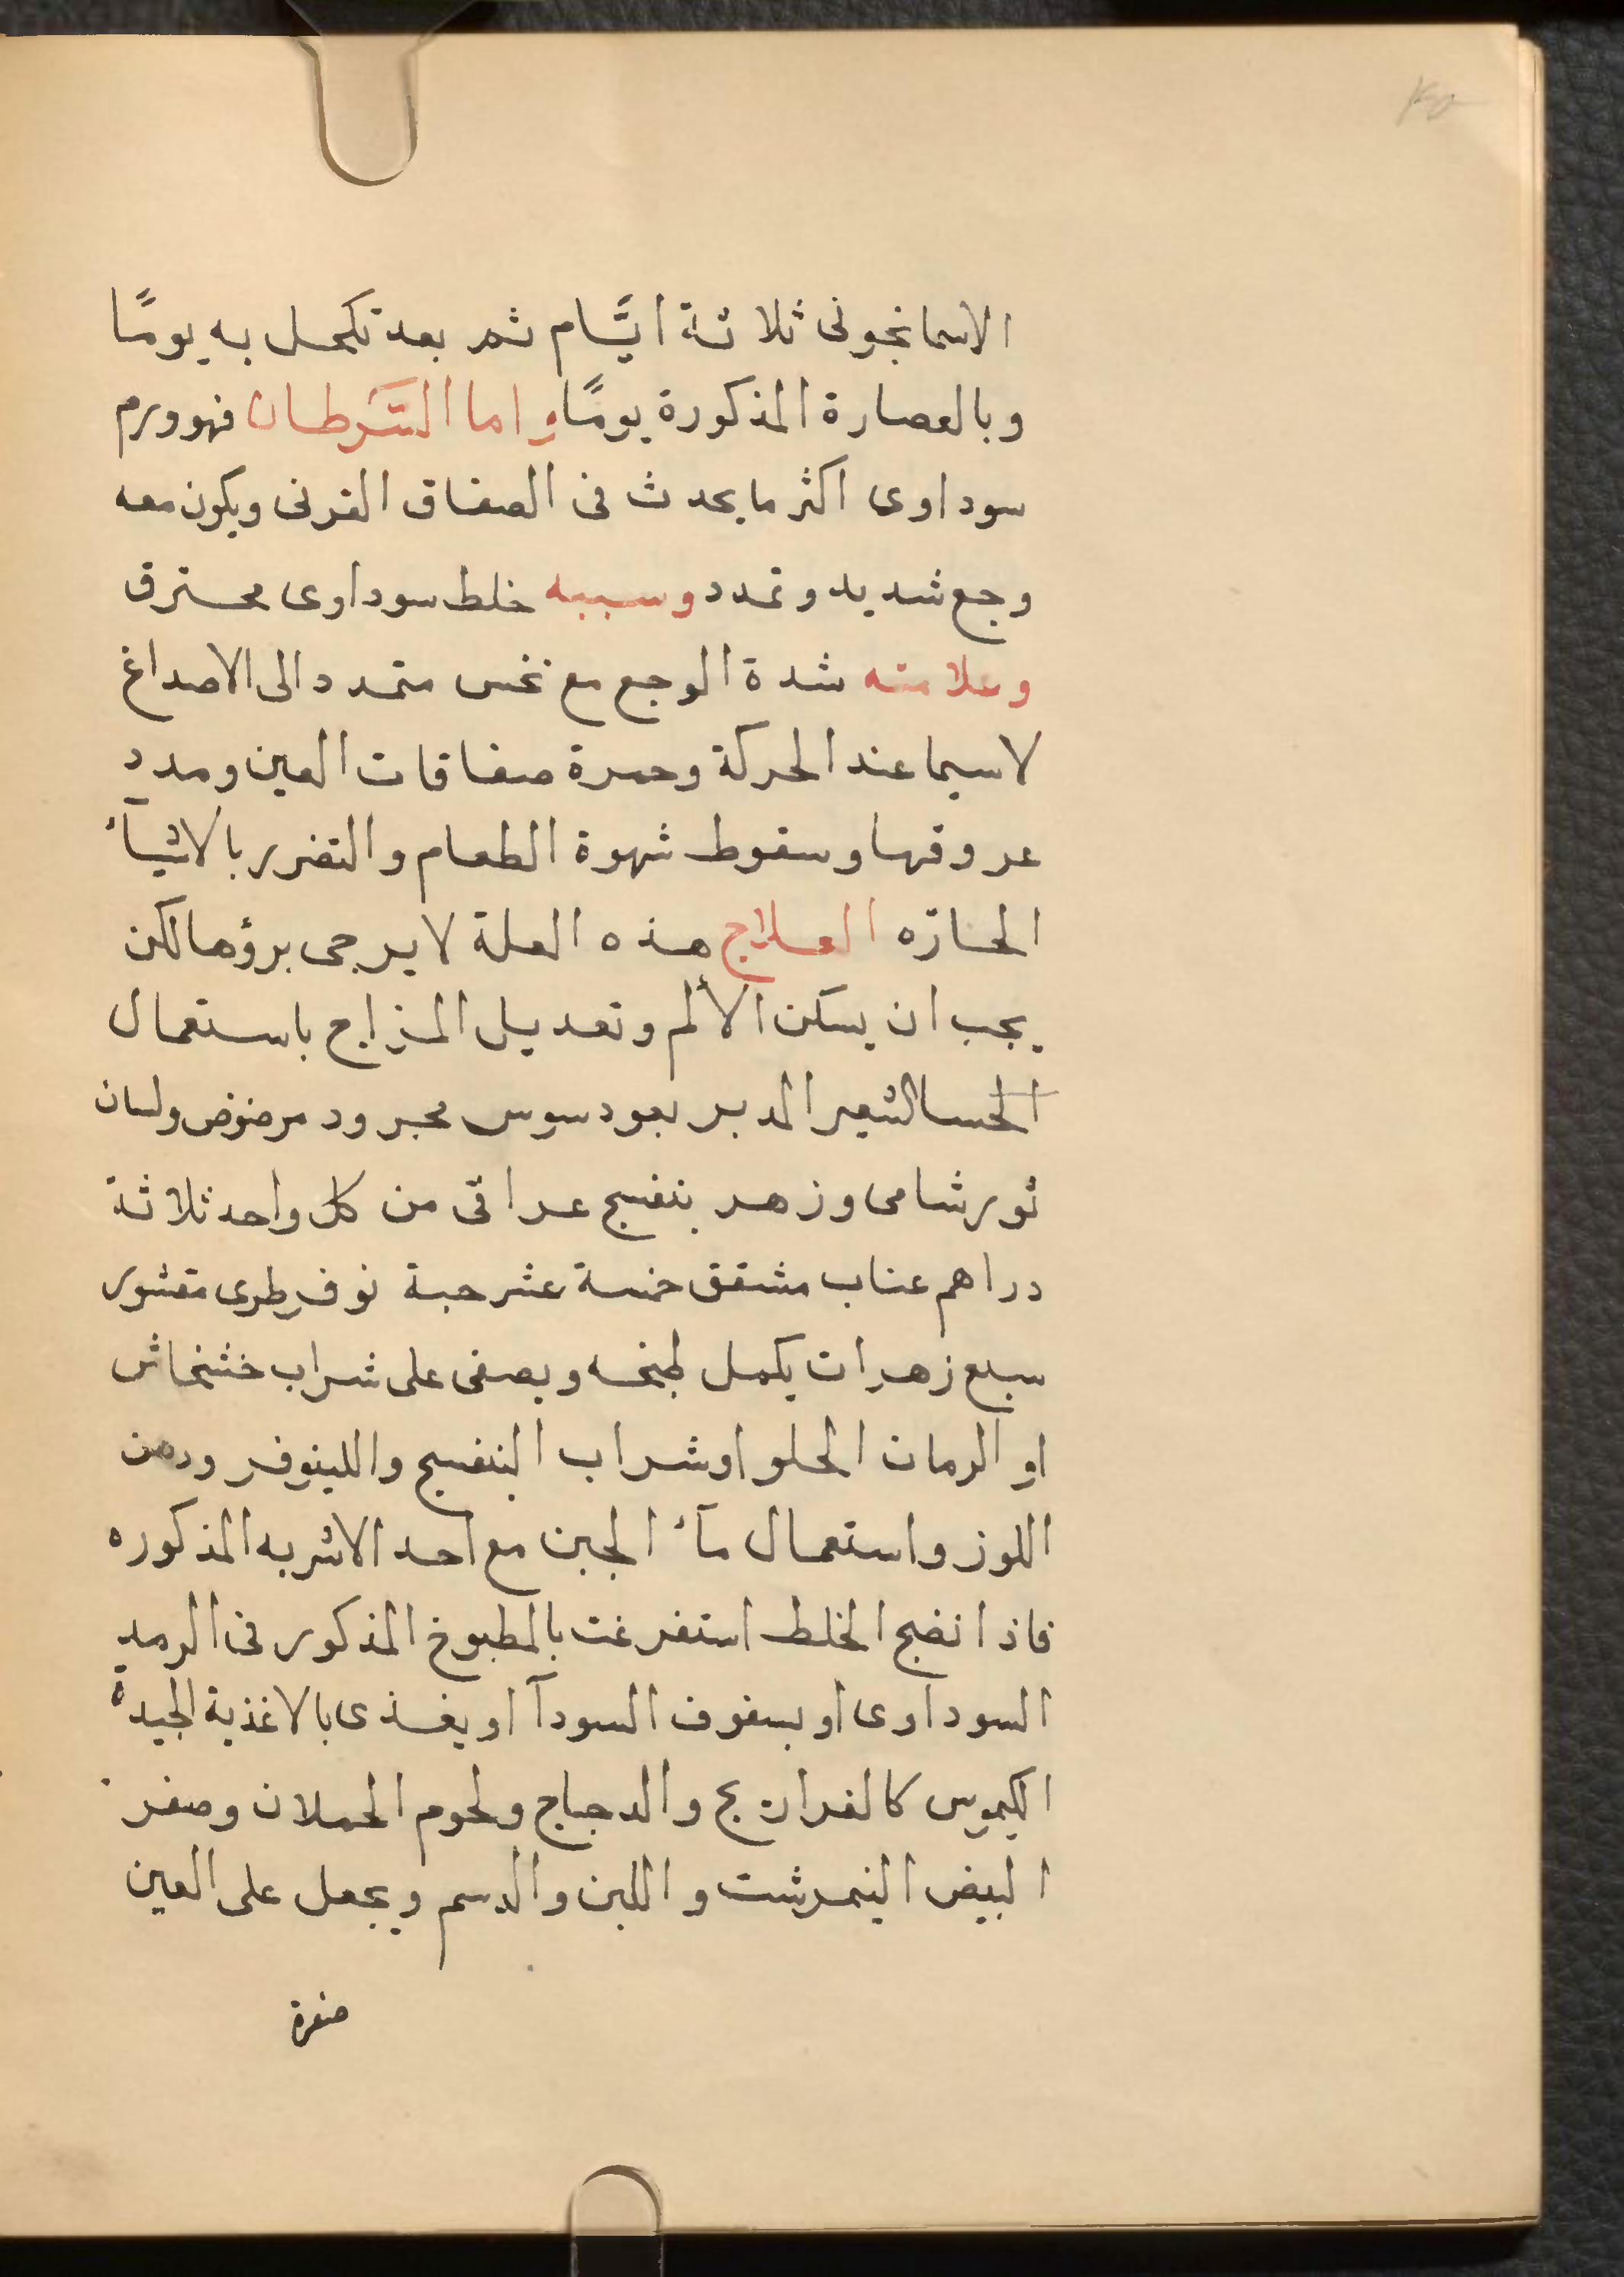 الاسمانجونى ثلاثة ايَّام ثم بعد تكحل به يومًا
وبالعصارة المذكورة يومًا واما السَّرطان فهو ورم
سوداوى اكثر ما يحدث فى الصفاق القرنى ويكون معه
وجع شديد وتمدد وسببه خلط سوداوى محترق
وعلامته شدة الوجع مع نخس متمدد الى الاصداغ
لاسيما عند الحركة وحمرة صفاقات العين ومدد
عروقها وسقوط شهوة الطعام والتضرر بالاشيآء
الحارّه العلاج هذه العلة لا يرجى برؤها لكن
يجب ان يسكن الألم وتعديل المزاج باستعمال
الحسا الشعير المدبر بعود سوس مجرود مرضوض ولسان
ثور شامى وزهر بنفسج عراقى من كل واحد ثلاثة
دراهم عناب مشقق خمسة عشر حبة نوفر طرى مقشور
سبع زهرات يكمل طبخه ويصفى على شراب خشخاش
او الرمان الحلو او شراب البنفسج واللينوفر ودهن
اللوز واستعمال مآء الجبن مع احد الاشربه المذكوره
فاذا نضج الخلط استفرغت بالمطبوخ المذكور فى الرمد
السوداوى او بسفوف السودآ او يغذى بالاغذية الجيدة
الكيموس كالفراريج والدجاج ولحوم الحملان وصفر
البيض النيمرشت واللبن والدسم ويجعل على العين
صفرة